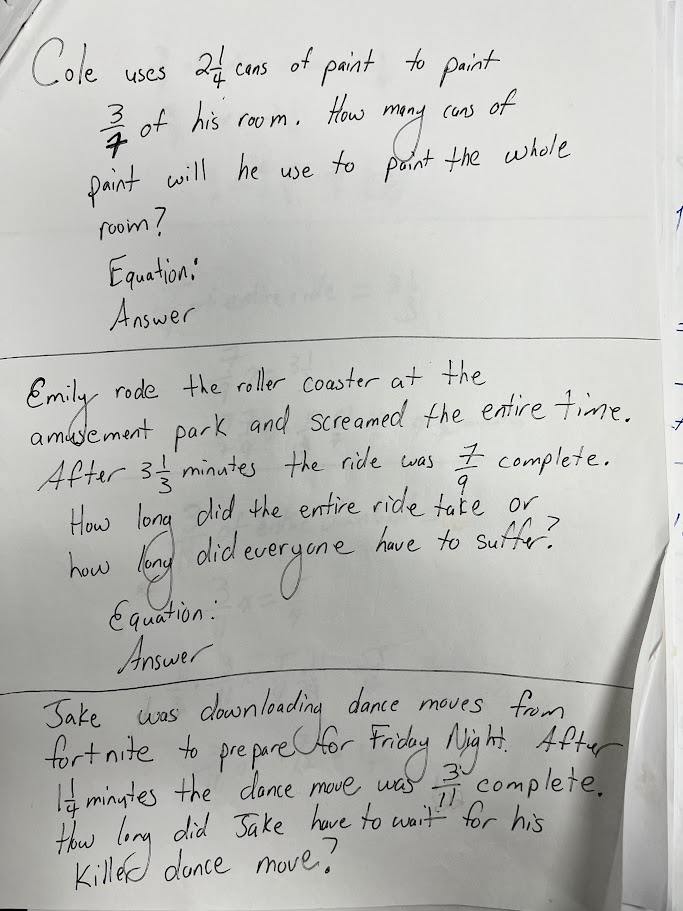 Cole uses 2 1/4 cans of paint to paint
3/7 of his room. How many cans of
paint will he use to paint the whole
room?
Equation:
Answer
Emily rode the roller coaster at the
amusement park and screamed the entire time.
After 3 1/3 minutes the ride was 7/9 complete.
How long did the entire ride take or
how long did everyone have to suffer?
Equation:
Answer
Jake was downloading dance moves from
fortnite to prepare for Friday Night. After
1 1/4 minutes the dance move was 3/11 complete.
How long did Jake have to wait for his
Killer dance move?